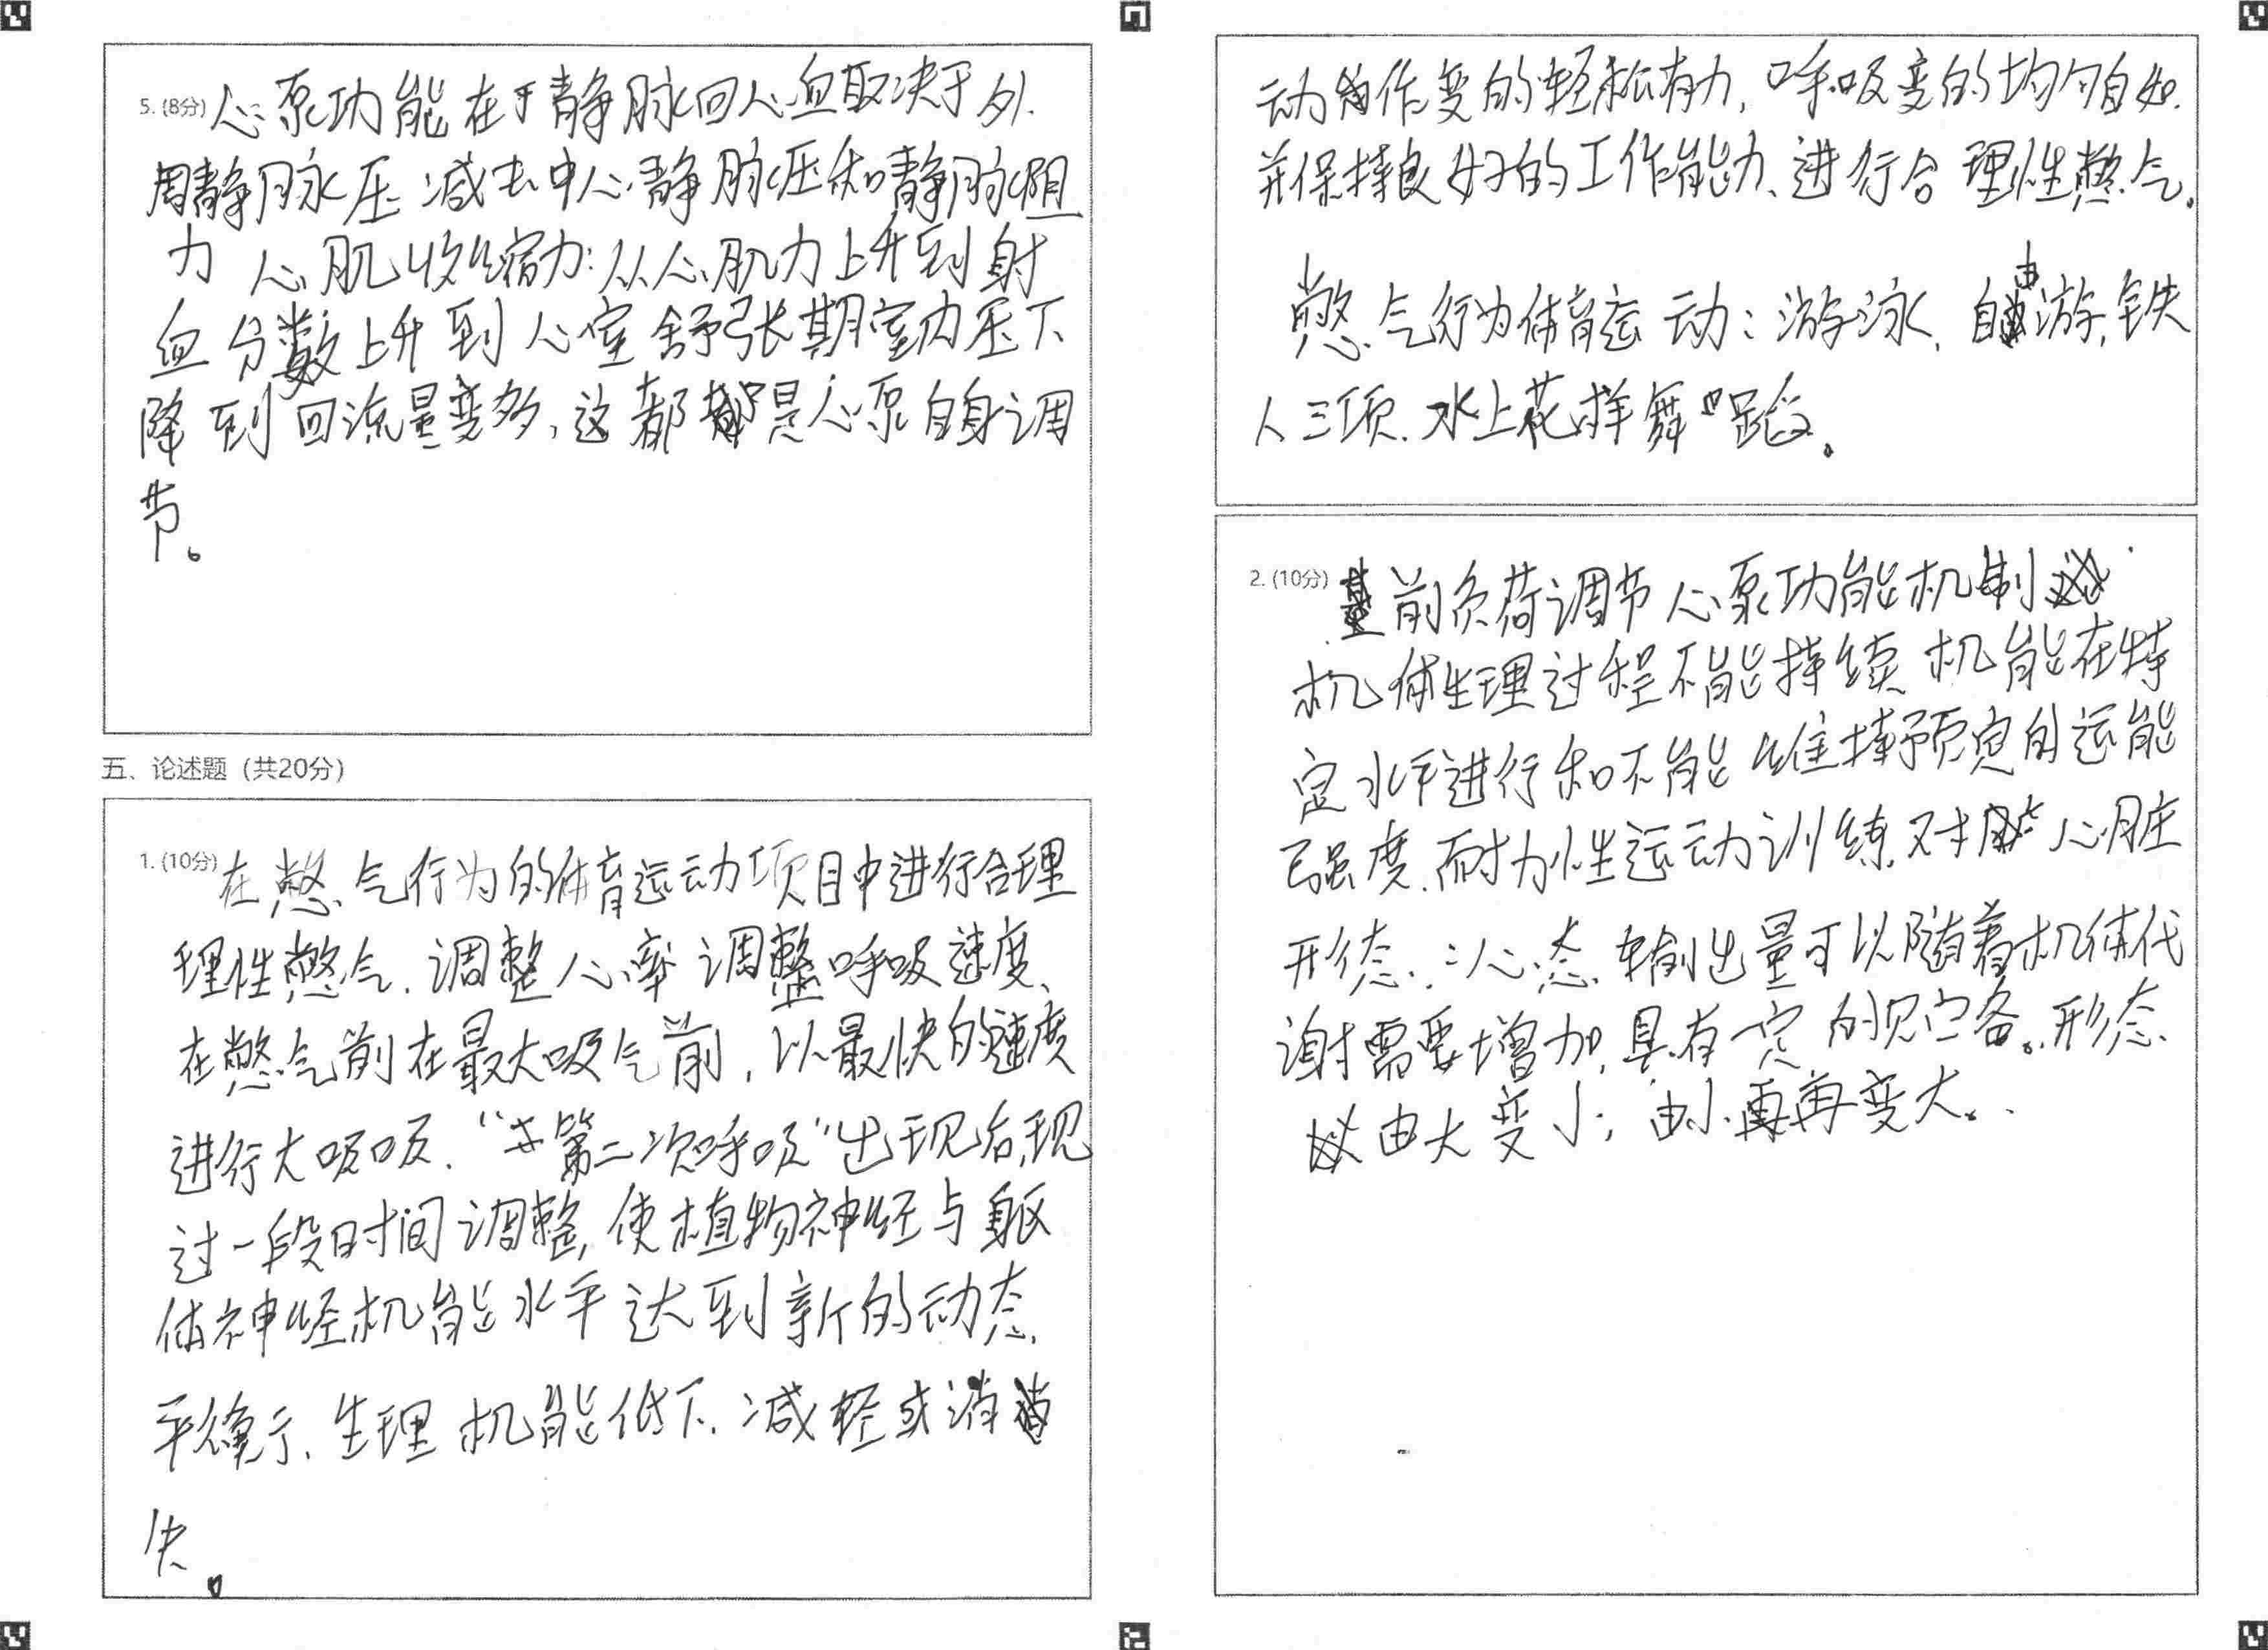 5. (8分) 心泵功能在于静脉回心血取决于外
周静脉压 减去中心静脉压和静脉阻
力 心肌收缩力：从心肌力上升到射
血分数上升到心室舒张期室内压下
降到回流量变多，这都是心泵自身调
节。
五、论述题（共20分）
1. (10分) 在憋气行为的体育运动项目中进行合理
理性憋气，调整心率 调整呼吸速度、
在憋气前在最大吸气前，以最快的速度
进行大吸吸．“第二次呼吸”出现后，现
过一段时间调整，使植物神经与躯
体神经机能水平达到新的动态
平衡、生理机能低下．减轻或消
失。
动作变的轻松有力，呼吸变的均匀自如．
并保持良好的工作能力、进行合理性憋气。
憋气行为体育运动：游泳、自由游，铁
人三项．水上花样舞蹈。
2. (10分) 前负荷调节心泵功能机制
机体生理过程不能持续 机能在特
定水平进行和不能维持预定的运能
强度．耐力性运动训练对心脏
形态：心态输出量可以随着机体代
谢需要增加，具有一定的贮备。形态
由大变小；由小再变大。